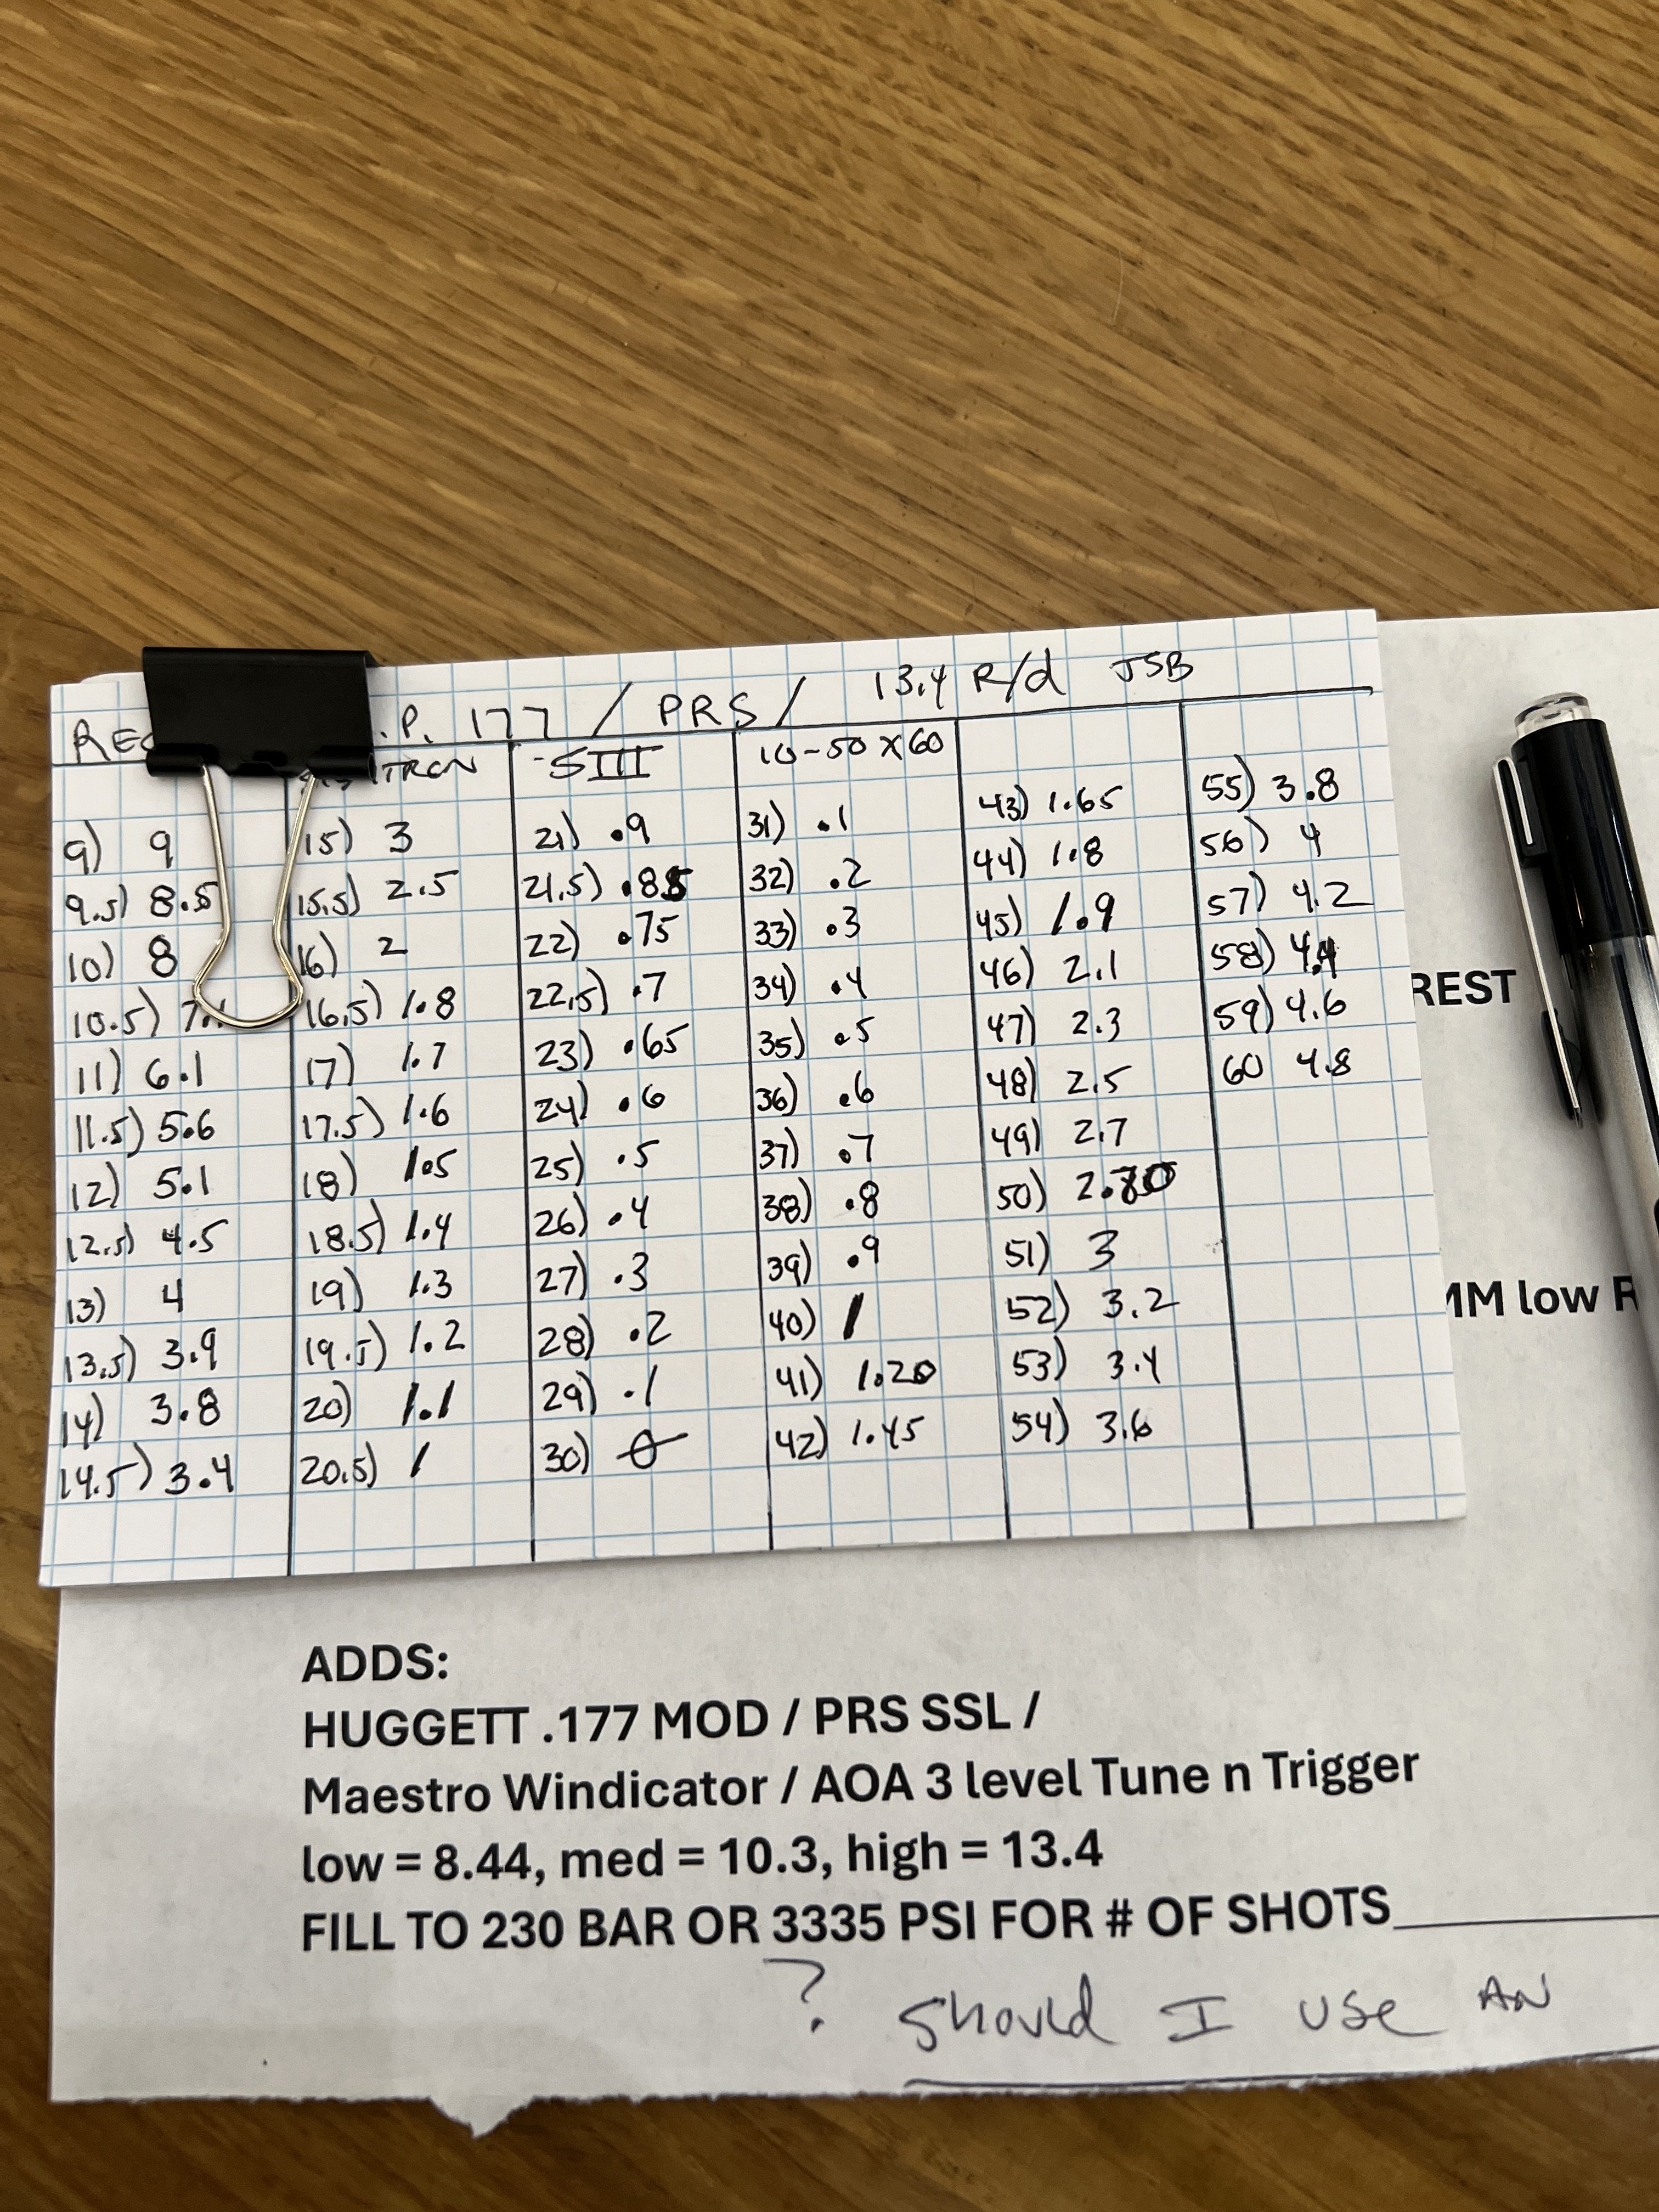 .P. 177 / PRS / 13.4 R/d JSB
SIII 10-50 x 60
9) 9
9.5) 8.5
10) 8
10.5)
11) 6.1
11.5) 5.6
12) 5.1
12.5) 4.5
13) 4
13.5) 3.9
14) 3.8
14.5) 3.4
15) 3
15.5) 2.5
16) 2
16.5) 1.8
17) 1.7
17.5) 1.6
18) 1.5
18.5) 1.4
19) 1.3
19.5) 1.2
20) 1.1
20.5) 1
21) .9
21.5) .85
22) .75
22.5) .7
23) .65
24) .6
25) .5
26) .4
27) .3
28) .2
29) .1
30) 0
31) .1
32) .2
33) .3
34) .4
35) .5
36) .6
37) .7
38) .8
39) .9
40) 1
41) 1.20
42) 1.45
43) 1.65
44) 1.8
45) 1.9
46) 2.1
47) 2.3
48) 2.5
49) 2.7
50)
51) 3
52) 3.2
53) 3.4
54) 3.6
55) 3.8
56) 4
57) 4.2
58) 4.4
59) 4.6
60 4.8
REST
MM low
ADDS:
HUGGETT .177 MOD / PRS SSL /
Maestro Windicator / AOA 3 level Tune n Trigger
low = 8.44, med = 10.3, high = 13.4
FILL TO 230 BAR OR 3335 PSI FOR # OF SHOTS
? Should I use AN